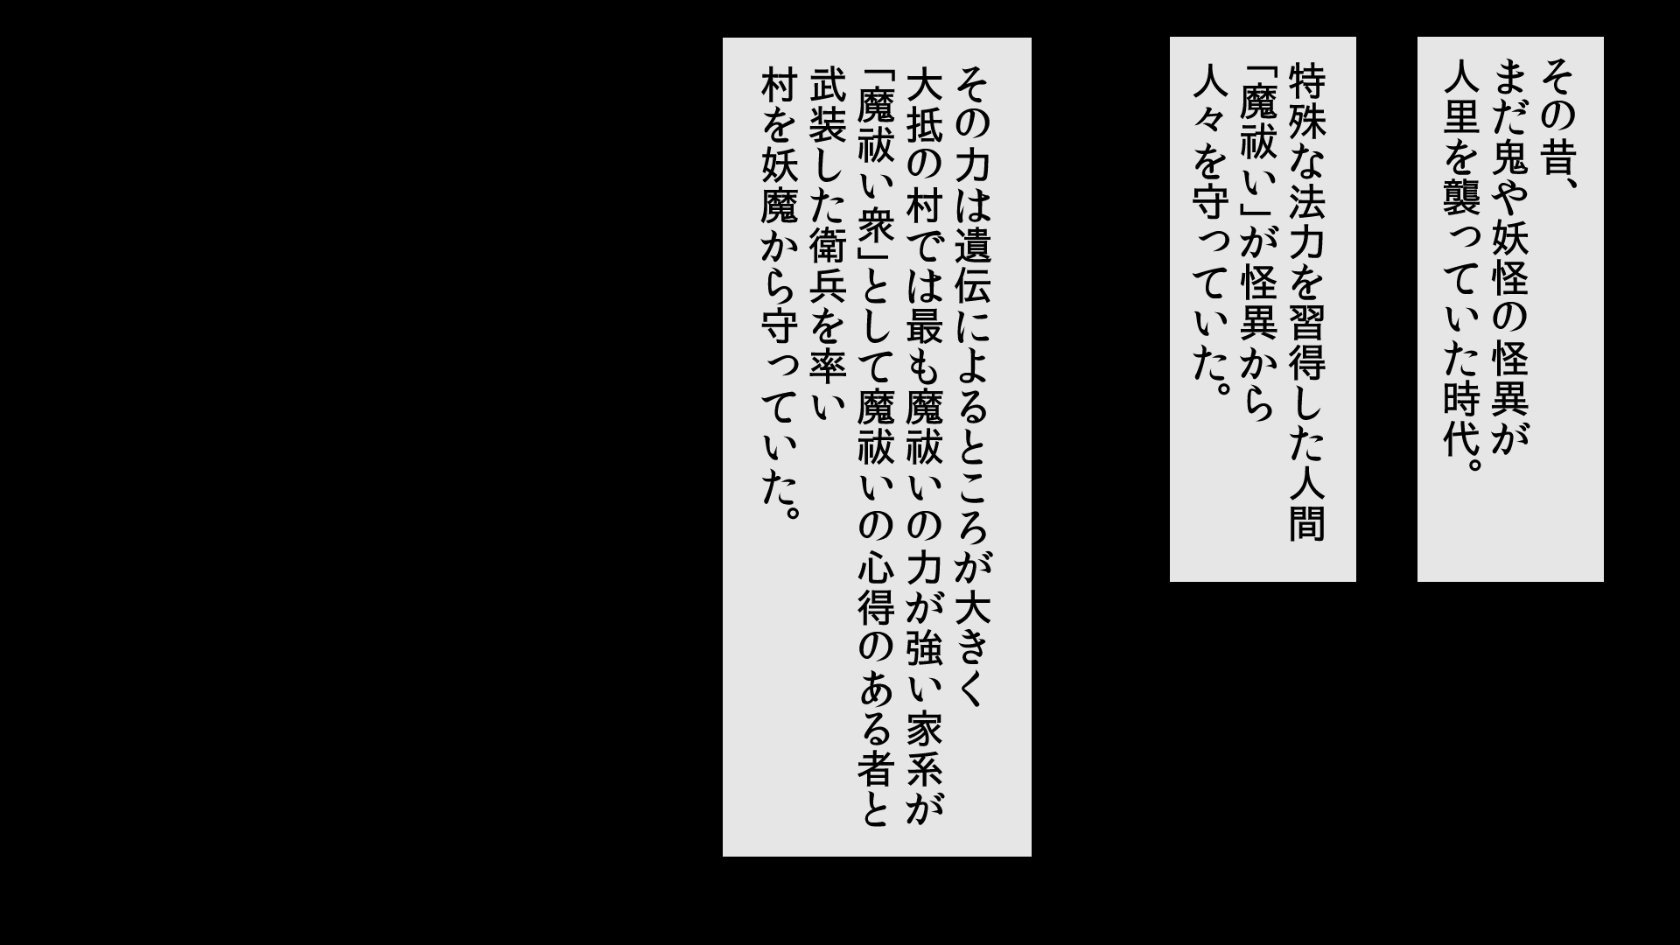 その昔、
まだ鬼や妖怪の怪異が
人里を襲っていた時代。
特殊な法力を習得した人間
「魔祓い」が怪異から
人々を守っていた。
その力は遺伝によるところが大きく
大抵の村では最も魔祓いの力が強い家系が
「魔祓い衆」として魔祓いの心得のある者と
武装した衛兵を率い
村を妖魔から守っていた。